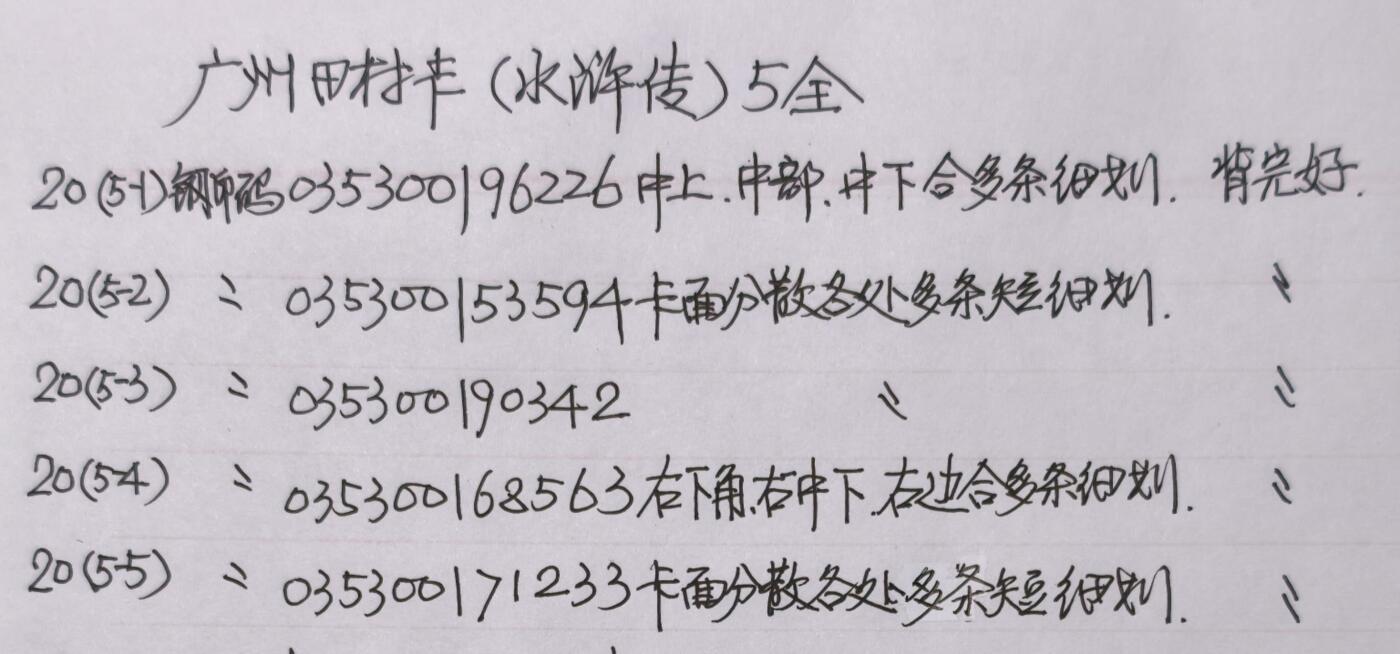 广州田村卡（水浒传）5全
20(5-1)钢印码035300196226中上.中部.中下合多条细划. 背完好.
20(5-2) 〃 035300153594卡面分散各处多条短细划. 〃
20(5-3) 〃 035300190342 〃 〃
20(5-4) 〃 035300168563右下角.右中下.右边合多条细划. 〃
20(5-5) 〃 035300171233卡面分散各处多条短细划. 〃